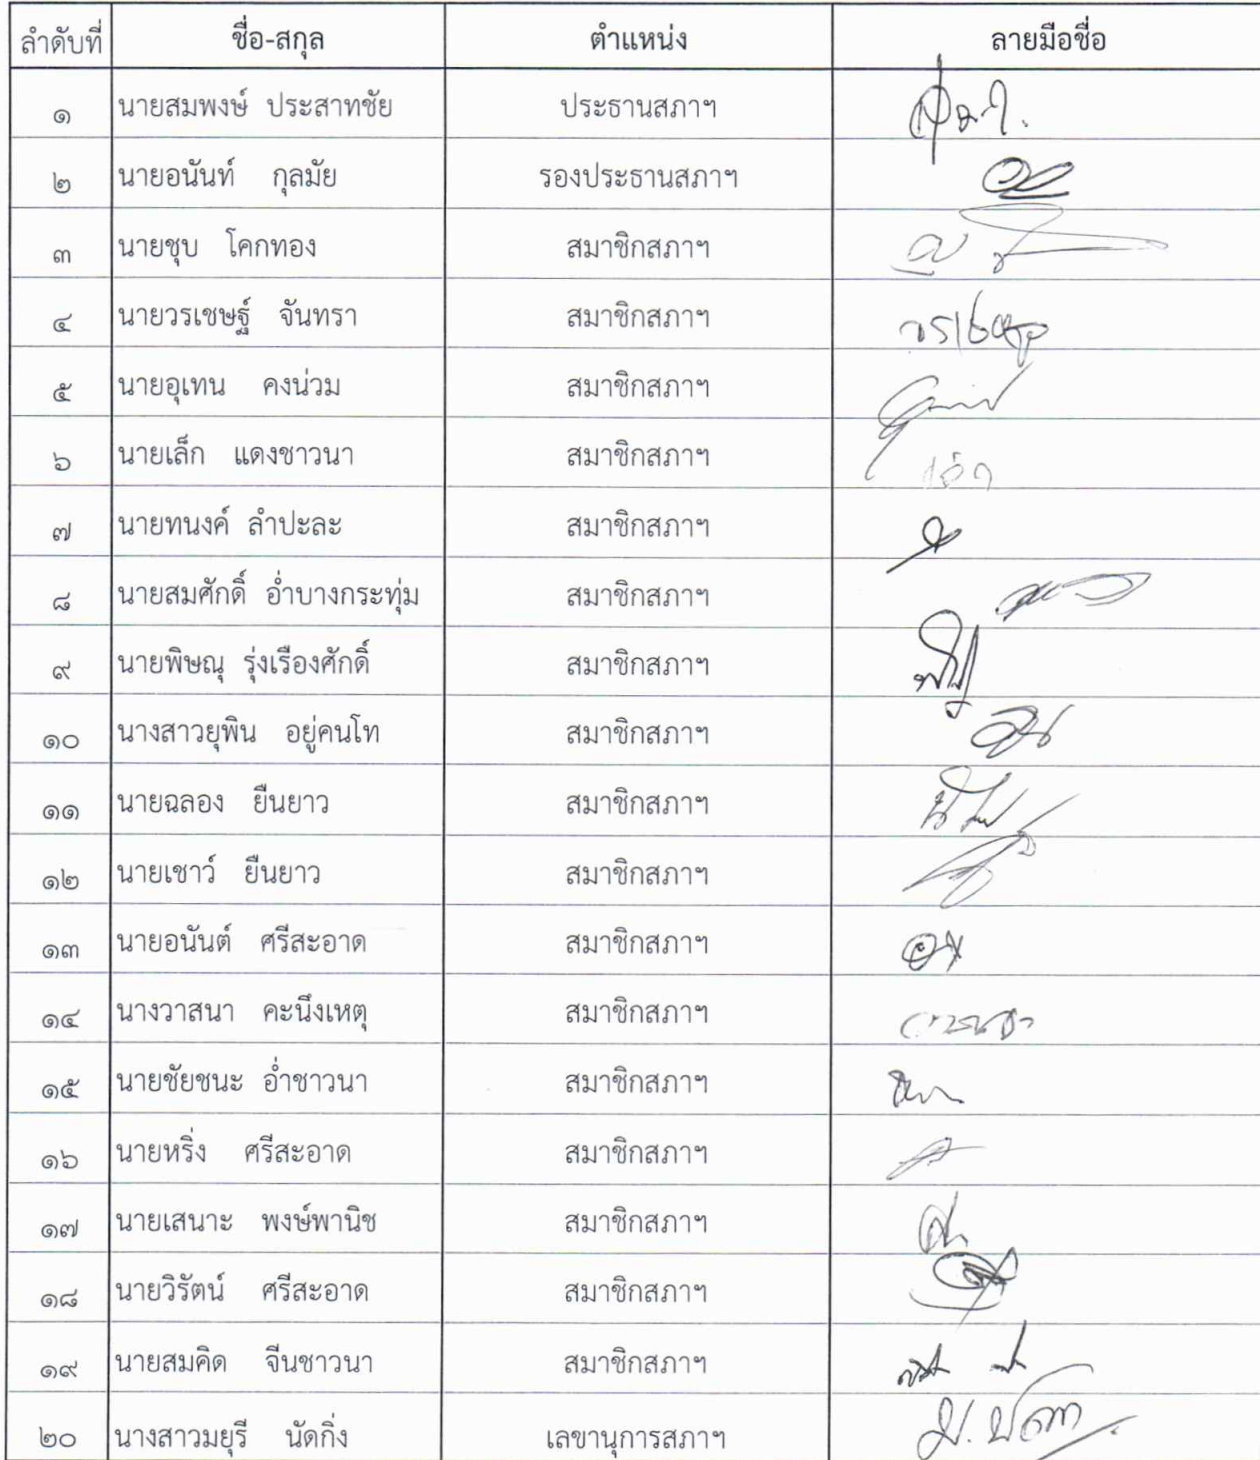 ลำดับที่ ชื่อ-สกุล ตำแหน่ง ลายมือชื่อ
๑ นายสมพงษ์ ประสาทชัย ประธานสภาฯ
๒ นายอนันท์ กุลมัย รองประธานสภาฯ
๓ นายชุบ โคกทอง สมาชิกสภาฯ
๔ นายวรเชษฐ์ จันทรา สมาชิกสภาฯ วรเชษฐ
๕ นายอุเทน คงน่วม สมาชิกสภาฯ
๖ นายเล็ก แดงชาวนา สมาชิกสภาฯ
๗ นายทนงค์ ลำปะละ สมาชิกสภาฯ
๘ นายสมศักดิ์ อ่ำบางกระทุ่ม สมาชิกสภาฯ
๙ นายพิษณุ รุ่งเรืองศักดิ์ สมาชิกสภาฯ
๑๐ นางสาวยุพิน อยู่คนโท สมาชิกสภาฯ
๑๑ นายฉลอง ยืนยาว สมาชิกสภาฯ
๑๒ นายเชาว์ ยืนยาว สมาชิกสภาฯ
๑๓ นายอนันต์ ศรีสะอาด สมาชิกสภาฯ
๑๔ นางวาสนา คะนึงเหตุ สมาชิกสภาฯ
๑๕ นายชัยชนะ อ่ำชาวนา สมาชิกสภาฯ
๑๖ นายหริ่ง ศรีสะอาด สมาชิกสภาฯ
๑๗ นายเสนาะ พงษ์พานิช สมาชิกสภาฯ
๑๘ นายวิรัตน์ ศรีสะอาด สมาชิกสภาฯ
๑๙ นายสมคิด จีนชาวนา สมาชิกสภาฯ
๒๐ นางสาวมยุรี นัดกิ่ง เลขานุการสภาฯ